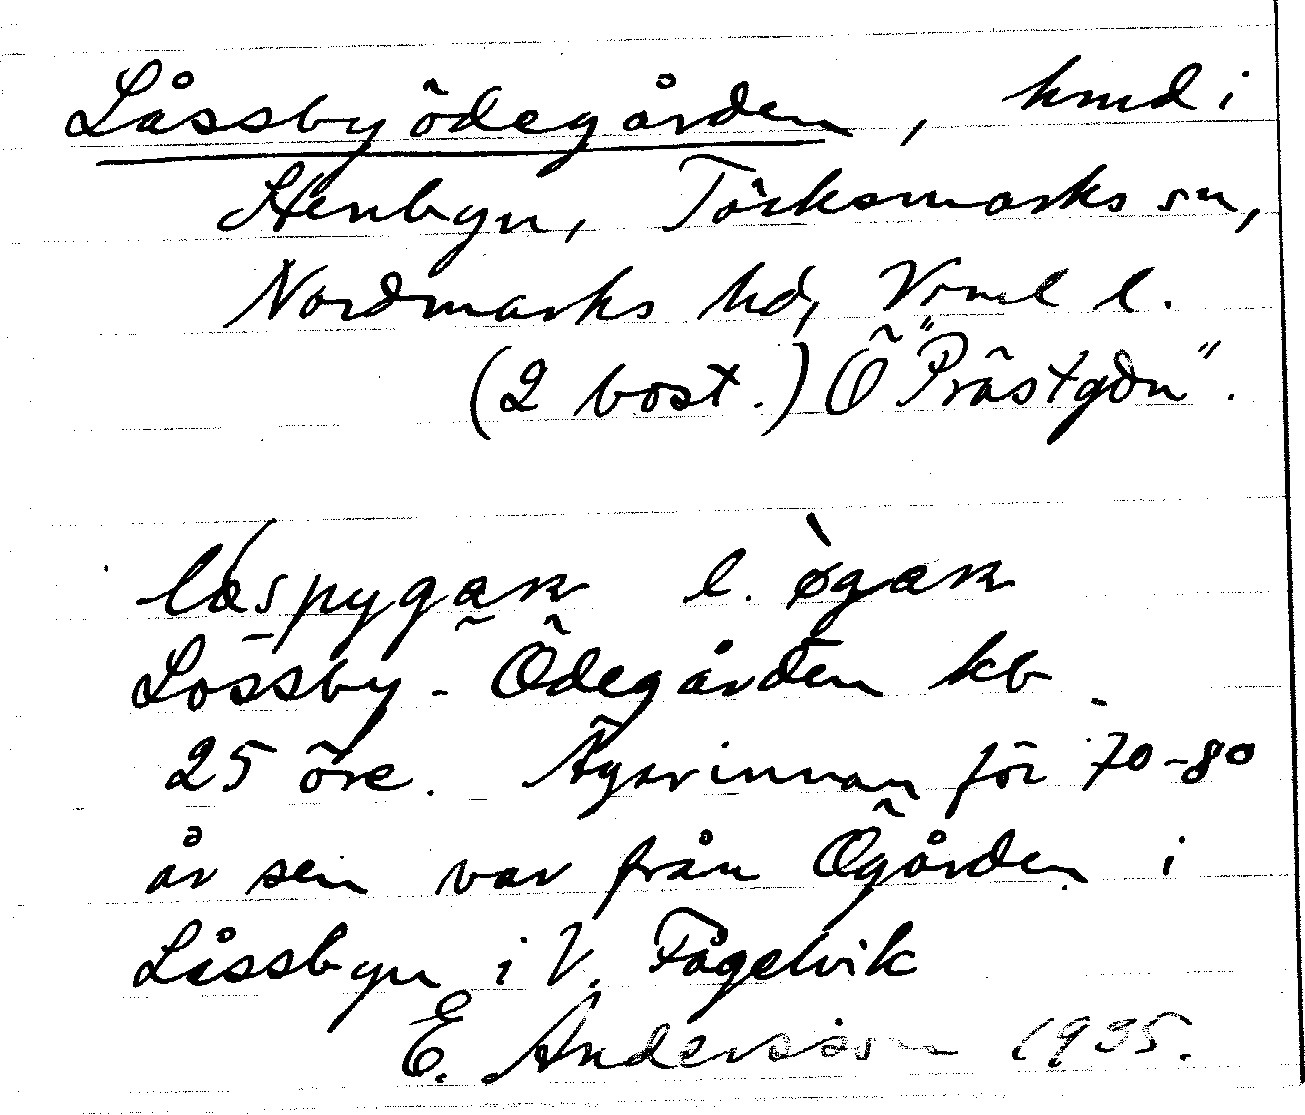 Låssbyödegården, hmd i
Henbyn, Töcksmarks sn,
Nordmarks hd, Vrml l.
(2 bost.) Ö "Prästgdn".
l. øgaɴ
Lossby-Ödegården kb
25 öre. Ägarinnan för 70-80
år sen var från Ögården i
Låssbyn i V. Fågelvik
E. Andersson 1935.